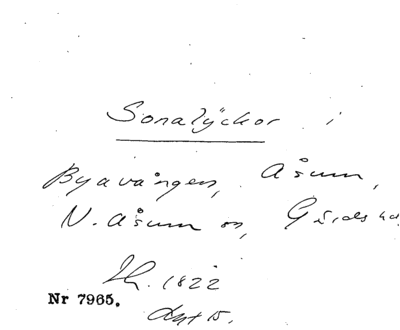 Sonalyckor i
Byavången, Åsum,
N. Åsum sn, Gärds hd,
Lh. 1822
Nr 7965.
Akt 15.